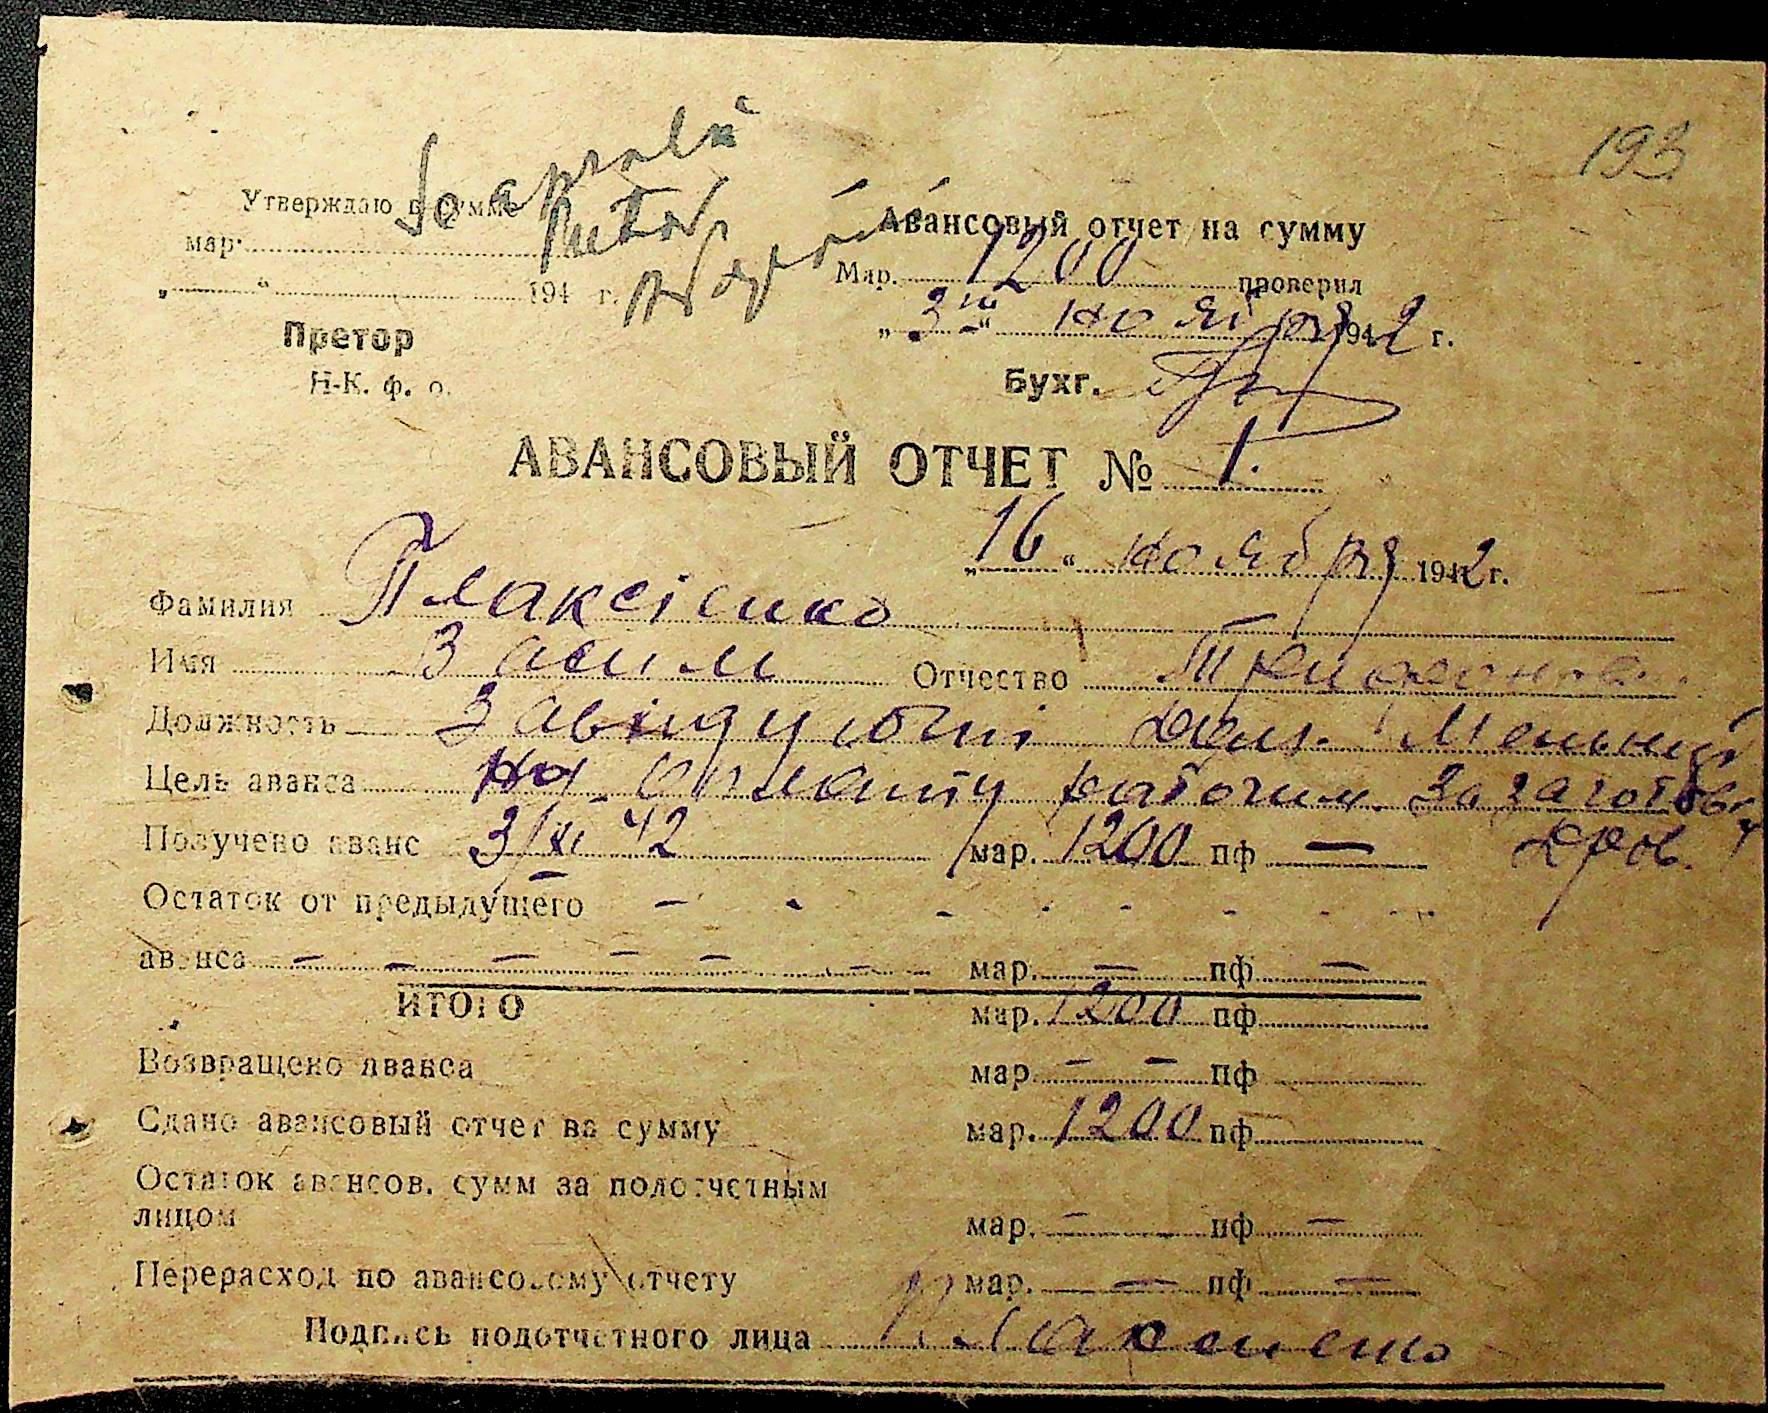 193
Утверждаю в сумме
мар.
„ “ 194 г.
Претор
Н-К. ф. о.
Авансовый отчет на сумму
Мар. 1200 проверил
„ 3го “ ноября 1942 г.
Бухг.
АВАНСОВЫЙ ОТЧЕТ № 1.
„ 16 “ ноября 1942 г.
Фамилия Плаксієнко
Имя Засим Отчество
Должность Завідуючий Мельниці
Цель аванса На оплату рабочим за заготовку
дров.
Получено аванс 3/XI 42 мар. 1200 пф —
Остаток от предыдущего - - - - - - - -
аванса — — — — — — мар. — пф. —
ИТОГО мар. 1200 пф.
Возвращено аванса мар. — — пф
Сдано авансовый отчет на сумму мар. 1200 пф.
Остаток авансов. сумм за подотчетным
лицом мар. — пф. —
Перерасход по авансовому отчету мар. — пф. —
Подпись подотчетного лица Плаксиенко